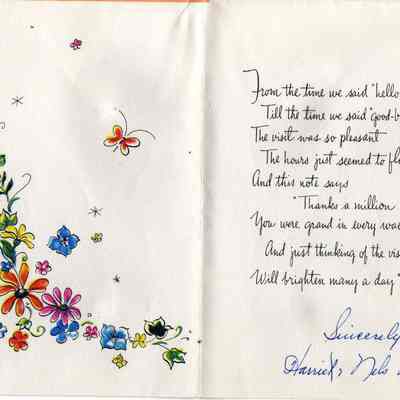 From the time we said "hello
Till the time we said "good-b
The visit was so pleasant
The hours just seemed to fl
And this note says
"Thanks a million
You were grand in every wa
And just thinking of the vis
Will brighten many a day"
Sincerely
Harriet & Nels